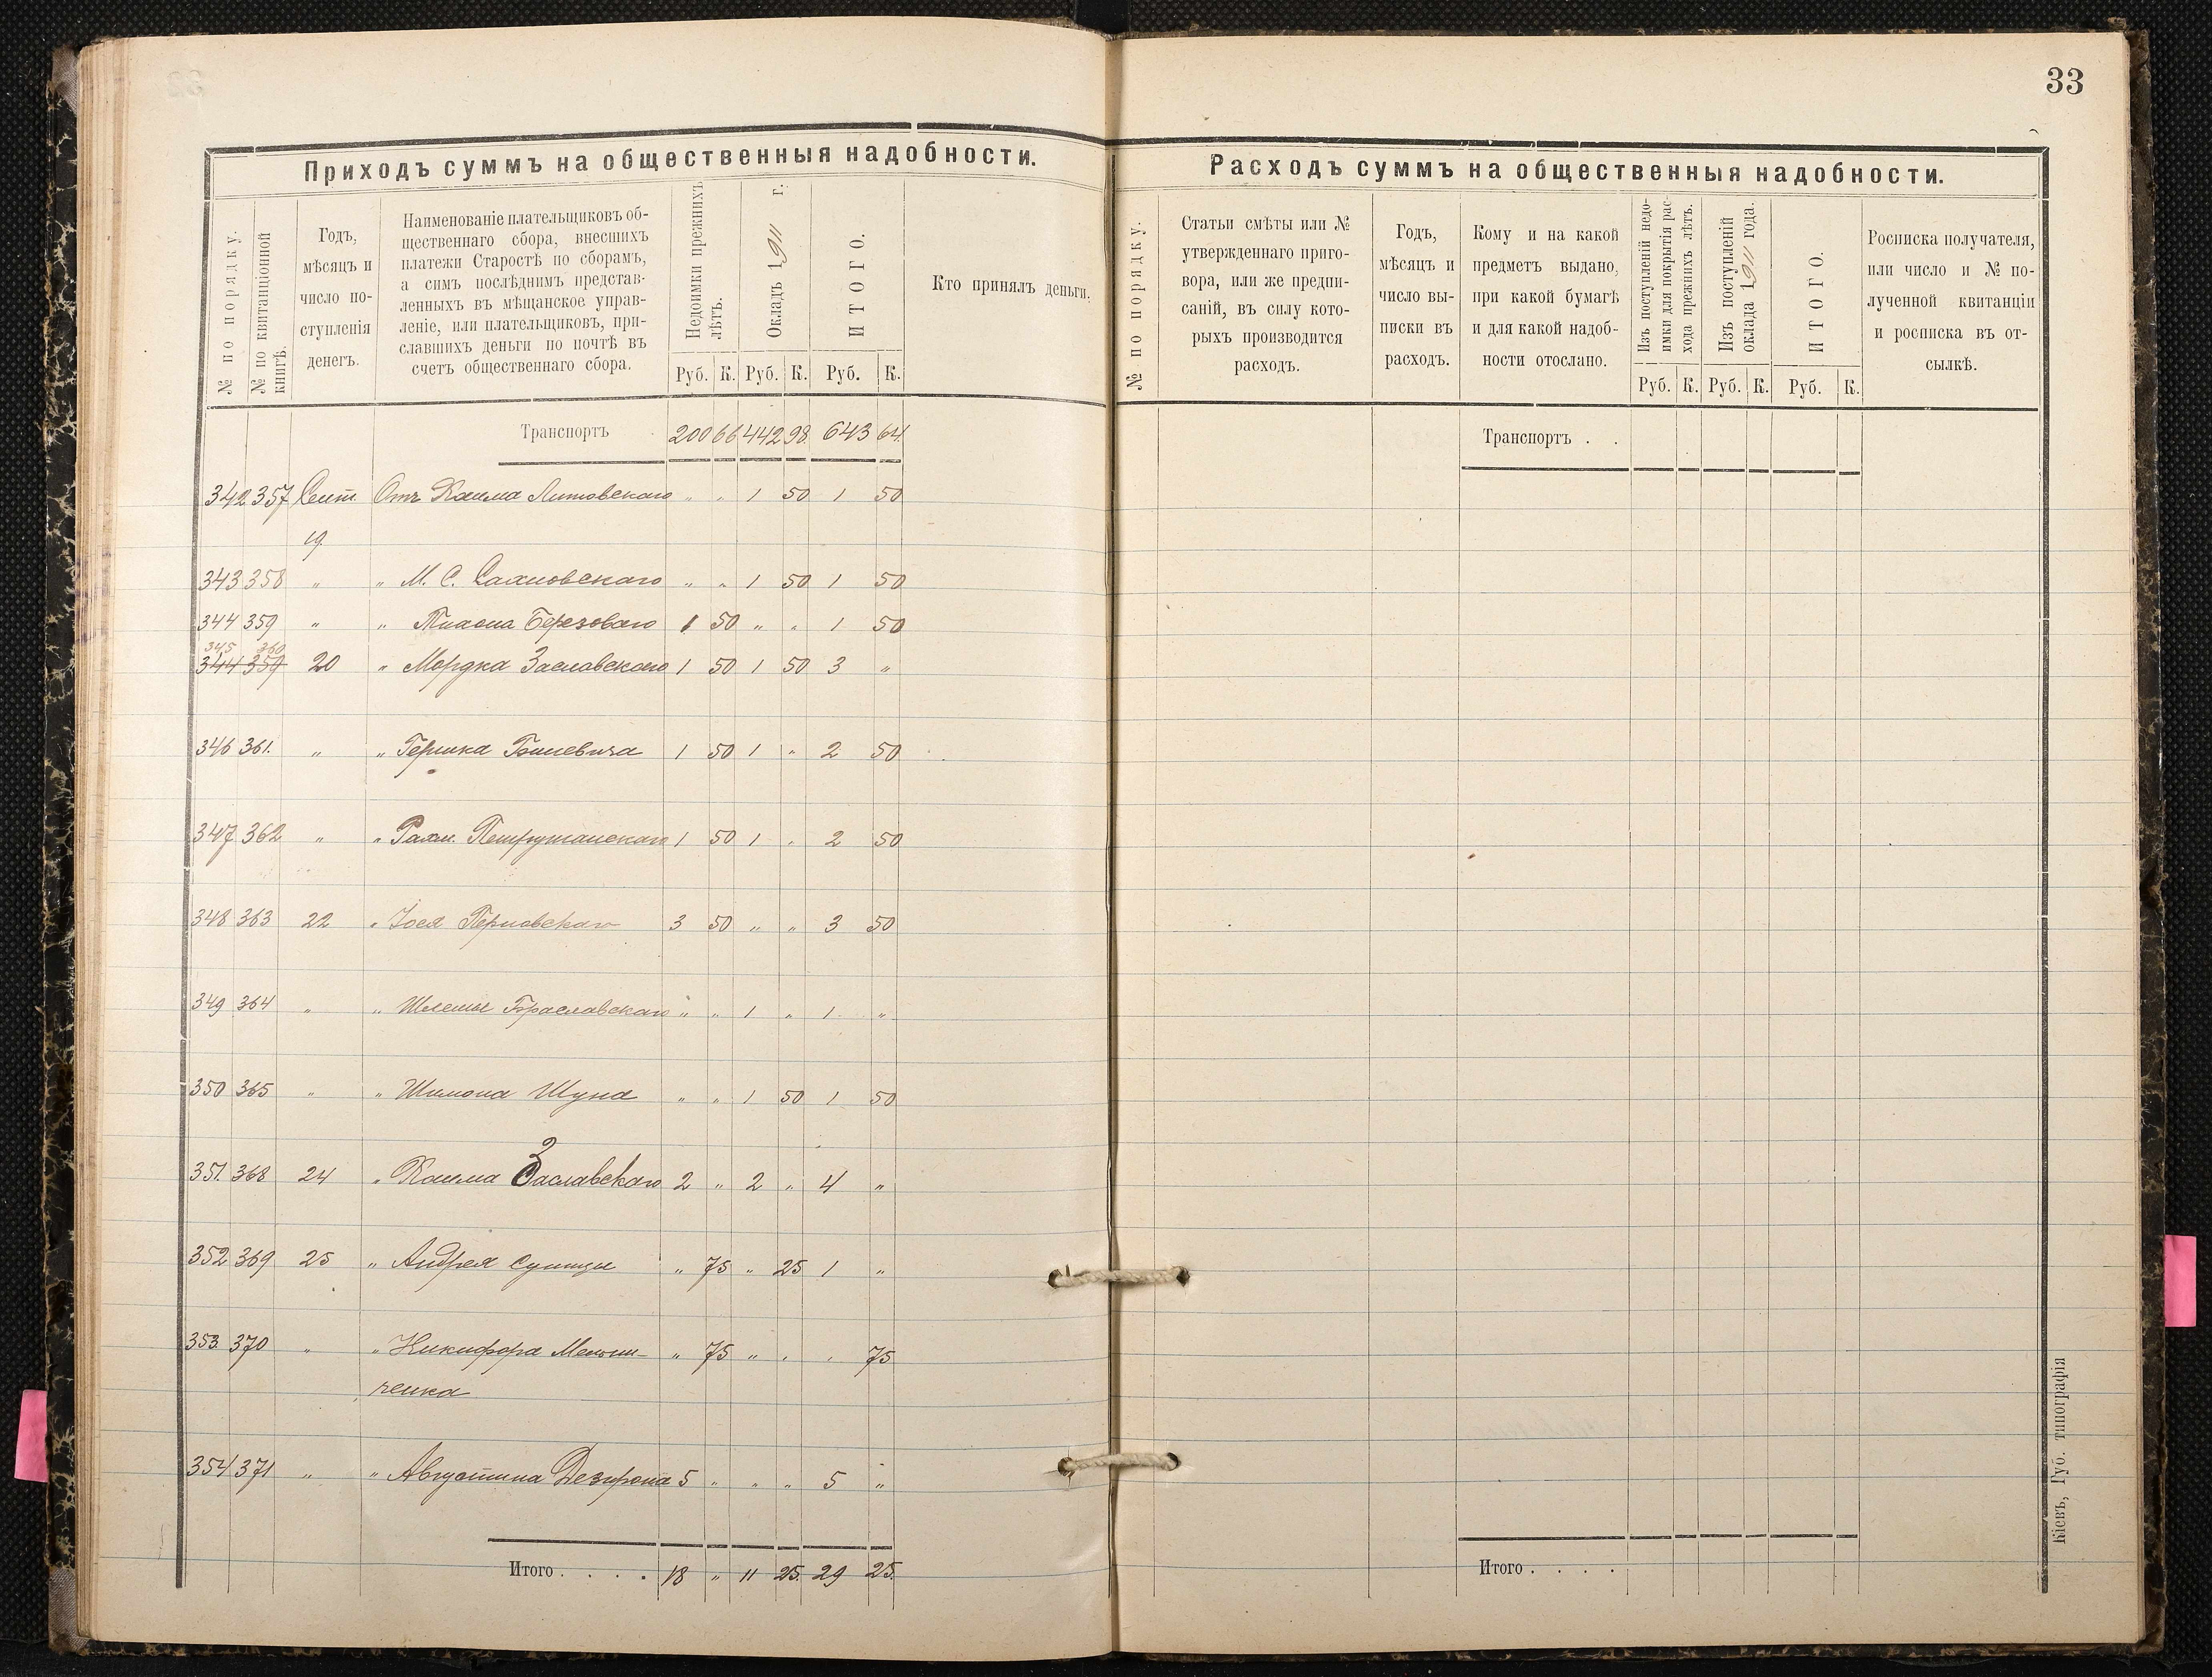 33
Приходъ суммъ на общественныя надобности.
№ по порядку.
№ по квитанціонной книгѣ.
Годъ,
мѣсяцъ и
число по-
ступленія
денегъ.
Наименованіе плательщиковъ об-
щественнаго сбора, внесшихъ
платежи Старостѣ по сборамъ,
а симъ послѣднимъ представ-
ленныхъ въ мѣщанское управ-
леніе, или плательщиковъ, при-
славшихъ деньги по почтѣ въ
счетъ общественнаго сбора.
Недоимки прежнихъ
лѣтъ.
Окладъ 1911 г.
ИТОГО.
Руб. К. Руб. К. Руб. К.
Кто принялъ деньги.
Транспортъ 200 66 442 98. 643 64.
342 357 Сент. Отъ Хаима Литовскаго " " 1 50 1 50
19.
343 358 " " М. С. Сахновскаго " " 1 50 1 50
344 359 " " Березоваго 1 50 " " 1 50
345 360
344 359 20 " Мордка Заславскаго 1 50 1 50 3 "
346 361. " " Гершка 1 50 1 " 2 50
347 362 " " Рахм. Петрушанскаго 1 50 1 " 2 50
348 363 22 " Іося 3 50 " " 3 50
349 364 " " Шлемы Браславскаго " " 1 " 1 "
350 365 " " Шимона Щупа " " 1 50 1 50
351. 368 24 " Хаима Заславскаго 2 " 2 " 4 "
352 369 25 " Андрея " 75 " 25 1 "
353. 370 " " Никифора Мельни- " 75 " " " 75
ченка
354 371 " " Августина 5 " " " 5 "
Итого . . . . 18 " 11 25. 29 25.
Расходъ суммъ на общественныя надобности.
№ по порядку.
Статьи смѣты или №
утвержденнаго приго-
вора, или же предпи-
саній, въ силу кото-
рыхъ производится
расходъ.
Годъ,
мѣсяцъ и
число вы-
писки въ
расходъ.
Кому и на какой
предметъ выдано,
при какой бумагѣ
и для какой надоб-
ности отослано.
Изъ поступленій недо-
имки для покрытія рас-
хода прежнихъ лѣтъ.
Изъ поступленій
оклада 1911 года.
ИТОГО.
Руб. К. Руб. К. Руб. К.
Росписка получателя,
или число и № по-
лученной квитанціи
и росписка въ от-
сылкѣ.
Транспортъ . .
Итого . . . .
Кіевъ, Губ. типографія